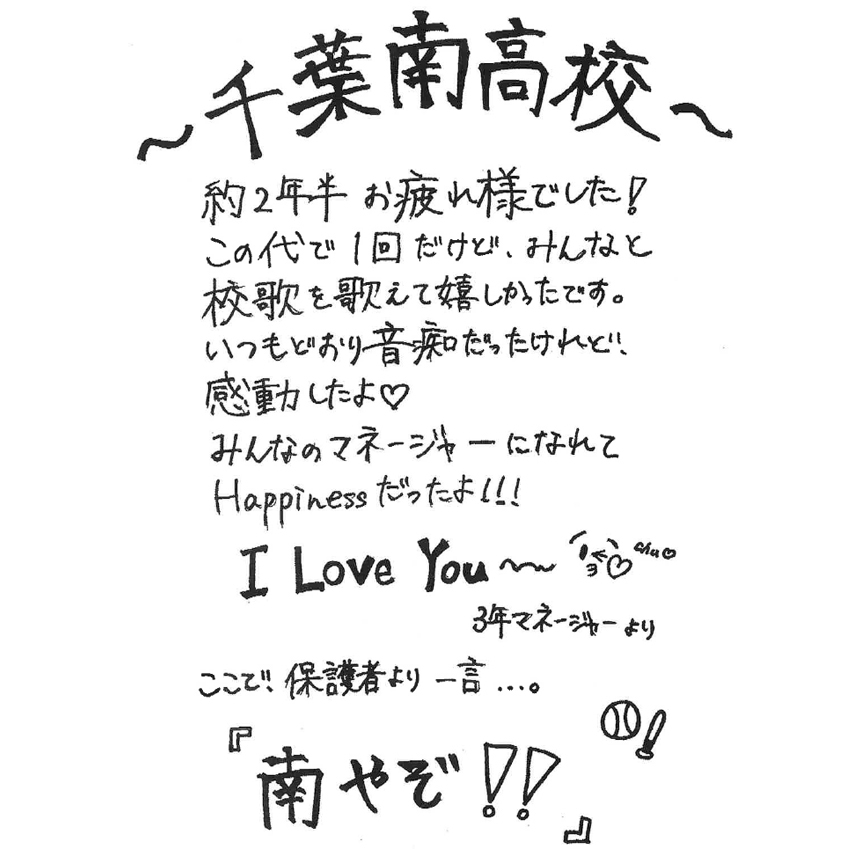 ～千葉南高校～
約2年半 お疲れ様でした!
この代で1回だけど、みんなと
校歌を歌えて嬉しかったです。
いつもどおり音痴だったけれど、
感動したよ♡
みんなのマネージャーになれて
Happinessだったよ!!!
I Love You～～
chu♡
3年マネージャーより
ここで! 保護者より一言…。
『南やぞ!!』